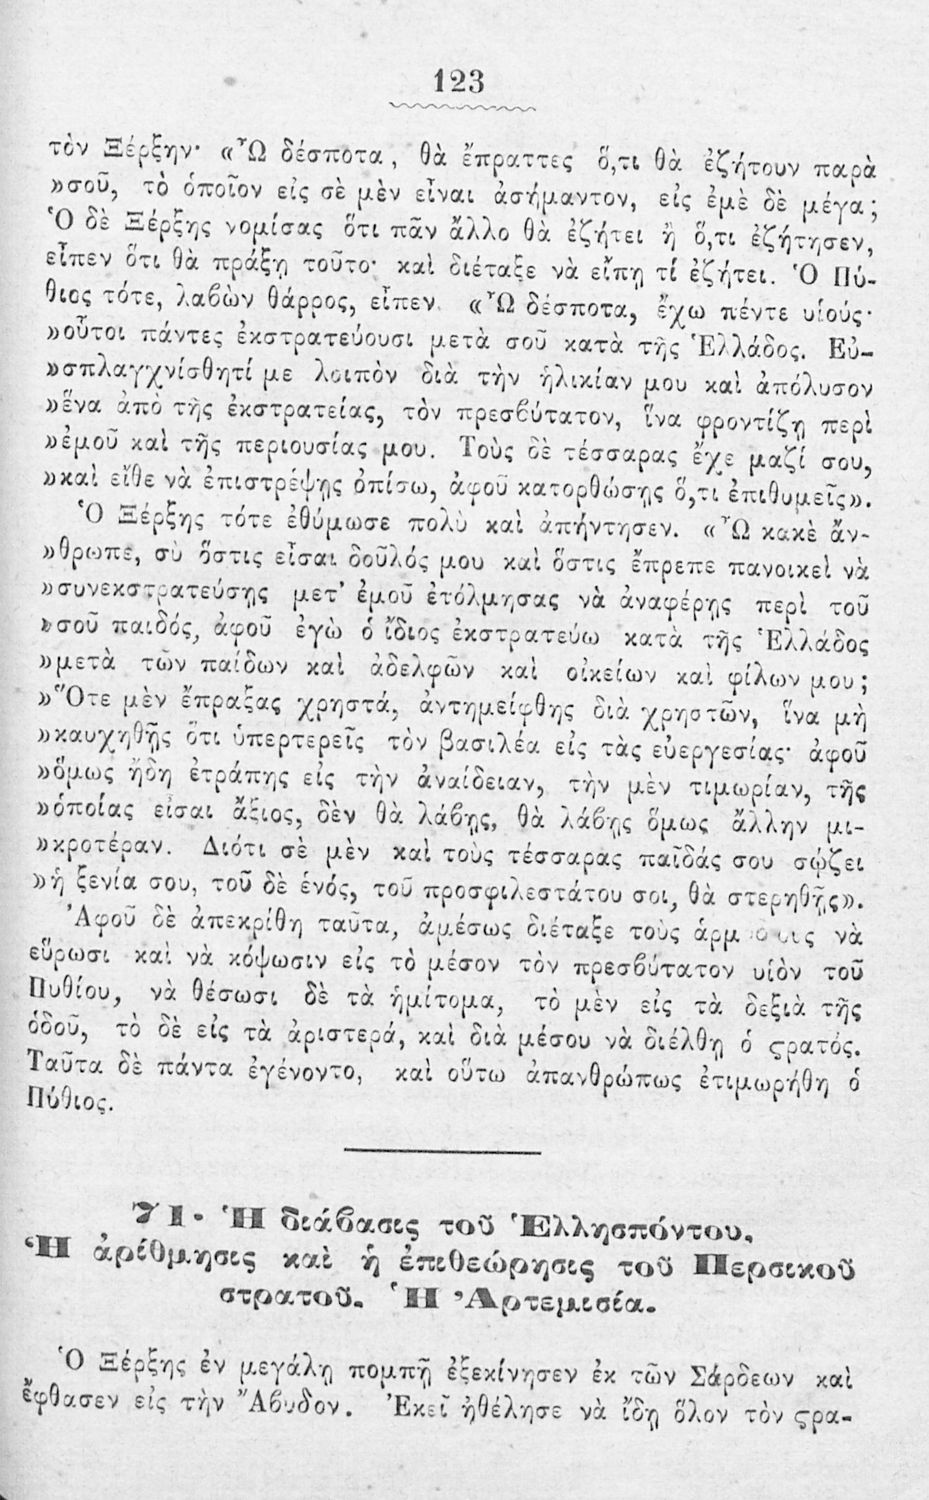 123
τὸν Ξέρξην· «Ὦ δέσποτα, θὰ ἔπραττες ὅ,τι θὰ ἐζήτουν παρὰ
»σοῦ, τὸ ὁποῖον εἰς σὲ μὲν εἶναι ἀσήμαντον, εἰς ἐμὲ δὲ μέγα;
Ὁ δὲ Ξέρξης νομίσας ὅτι πᾶν ἄλλο θὰ ἐζήτει ἢ ὅ,τι ἐζήτησεν,
εἶπεν ὅτι θὰ πράξῃ τοῦτο· καὶ διέταξε νὰ εἴπῃ τί ἐζήτει. Ὁ Πύ-
θιος τότε, λαβὼν θάρρος, εἶπεν «Ὦ δέσποτα, ἔχω πέντε υἱούς·
»οὗτοι πάντες ἐκστρατεύουσι μετὰ σοῦ κατὰ τῆς Ἑλλάδος. Εὐ-
»σπλαγχνίσθητί με λοιπὸν διὰ τὴν ἡλικίαν μου καὶ ἀπόλυσον
»ἕνα ἀπὸ τῆς ἐκστρατείας, τὸν πρεσβύτατον, ἵνα φροντίζῃ περὶ
»ἐμοῦ καὶ τῆς περιουσίας μου. Τοὺς δὲ τέσσαρας ἔχε μαζί σου,
»καὶ εἴθε νὰ ἐπιστρέψῃς ὀπίσω, ἀφοῦ κατορθώσῃς ὅ,τι ἐπιθυμεῖς».
Ὁ Ξέρξης τότε ἐθύμωσε πολὺ καὶ ἀπήντησεν. «Ὦ κακὲ ἄν-
»θρωπε, σὺ ὅστις εἶσαι δοῦλός μου καὶ ὅστις ἔπρεπε πανοικεὶ νὰ
»συνεκστρατεύσῃς μετ' ἐμοῦ ἐτόλμησας νὰ ἀναφέρῃς περὶ τοῦ
»σοῦ παιδός, ἀφοῦ ἐγὼ ὁ ἴδιος ἐκστρατεύω κατὰ τῆς Ἑλλάδος
»μετὰ τῶν παίδων καὶ ἀδελφῶν καὶ οἰκείων καὶ φίλων μου;
»Ὅτε μὲν ἔπραξας χρηστά, ἀντημείφθης διὰ χρηστῶν, ἵνα μὴ
»καυχηθῇς ὅτι ὑπερτερεῖς τὸν βασιλέα εἰς τὰς εὐεργεσίας· ἀφοῦ
»ὅμως ἤδη ἐτράπης εἰς τὴν ἀναίδειαν, τὴν μὲν τιμωρίαν, τῆς
»ὁποίας εἶσαι ἄξιος, δὲν θὰ λάβῃς, θὰ λάβῃς ὅμως ἄλλην μι-
»κροτέραν. Διότι σὲ μὲν καὶ τοὺς τέσσαρας παῖδάς σου σῴζει
»ἡ ξενία σου, τοῦ δὲ ἑνός, τοῦ προσφιλεστάτου σοι, θὰ στερηθῇς».
Ἀφοῦ δὲ ἀπεκρίθη ταῦτα, ἀμέσως διέταξε τοὺς νὰ
εὕρωσι καὶ νὰ κόψωσιν εἰς τὸ μέσον τὸν πρεσβύτατον υἱὸν τοῦ
Πυθίου, νὰ θέσωσι δὲ τὰ ἡμίτομα, τὸ μὲν εἰς τὰ δεξιὰ τῆς
ὁδοῦ, τὸ δὲ εἰς τὰ ἀριστερά, καὶ διὰ μέσου νὰ διέλθῃ ὁ ϛρατός.
Ταῦτα δὲ πάντα ἐγένοντο, καὶ οὕτω ἀπανθρώπως ἐτιμωρήθη ὁ
Πύθιος.
71. Ἡ διάβασις τοῦ Ἑλλησπόντου.
Ἡ ἀρίθμησις καὶ ἡ ἐπιθεώρησις τοῦ Περσικοῦ
στρατοῦ. Ἡ Ἀρτεμισία.
Ὁ Ξέρξης ἐν μεγάλῃ πομπῇ ἐξεκίνησεν ἐκ τῶν Σάρδεων καὶ
ἔφθασεν εἰς τὴν Ἄβυδον. Ἐκεῖ ἠθέλησε νὰ ἴδῃ ὅλον τὸν ϛρα-